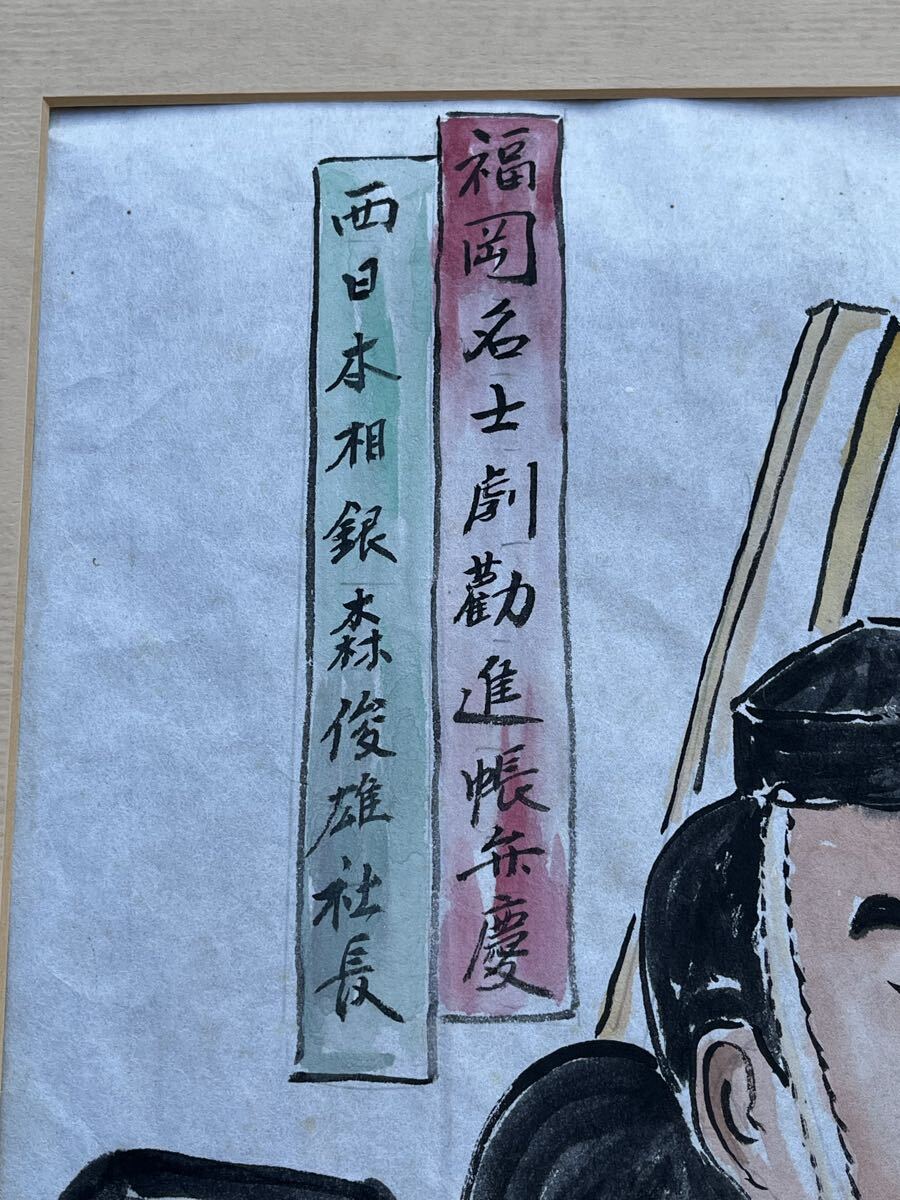 福岡名士劇勸進帳弁慶
西日本相銀森俊雄社長